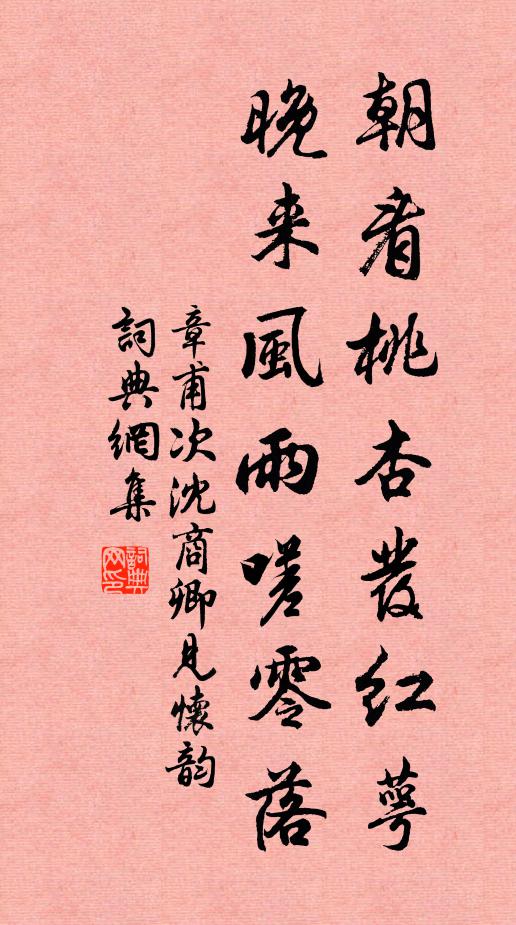 朝看桃杏發紅萼
晚来風雨嗟零落
章甫次沈商卿見懷韵
詞典網集
詞典網印